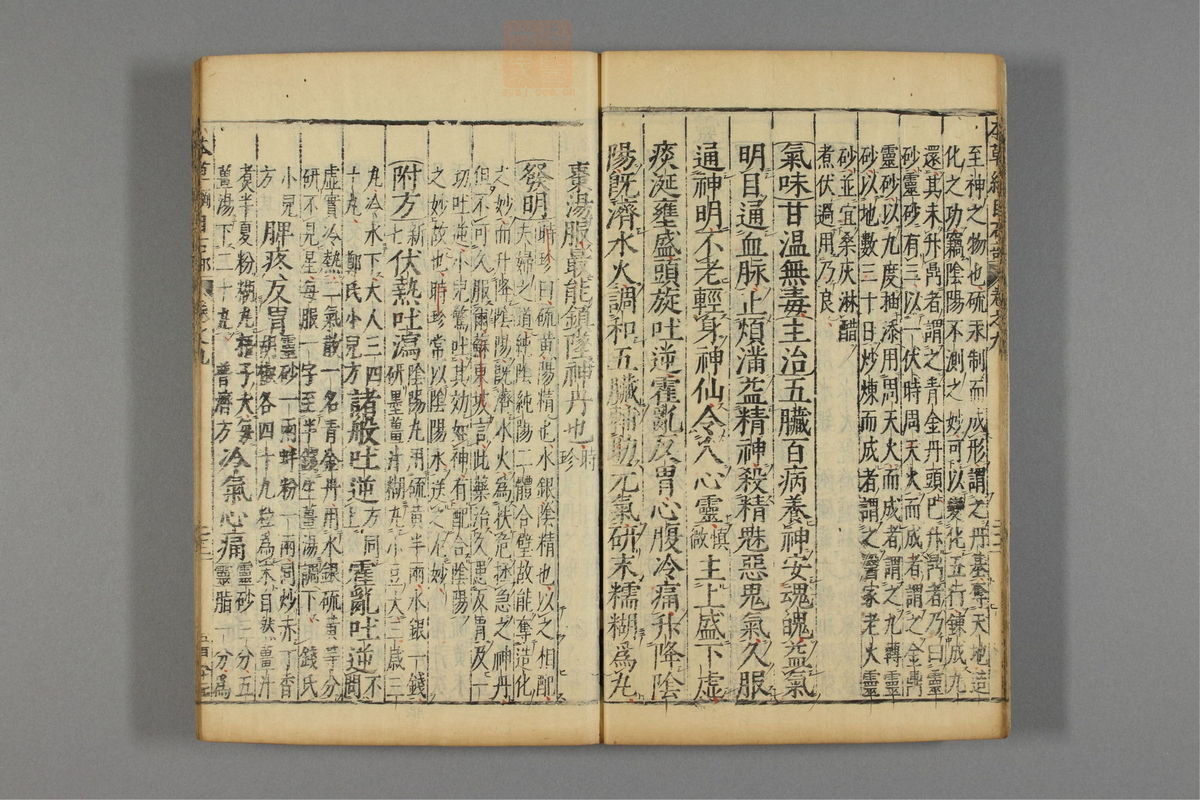 至神之物也硫汞制而成形謂之丹基奪天地造
化之功竊陰陽不測之妙可以變化五行鍊成九
還其未升鼎者謂之青金丹頭已升鼎者乃曰靈
砂靈砂有三以一伏時周天火而成者謂之金鼎
靈砂以九度抽添用周天火而成者謂之九轉靈
砂以地數三十日炒煉而成者謂之醫家老火靈
砂並宜桑灰淋醋
煮伏過用乃良
氣味甘溫無毒主治五臟百病養神安魂魄益氣
明目通血脉止煩滿益精神殺精魅惡鬼氣久服
通神明不老輕身神仙令人心靈慎微主上盛下虛
痰涎壅盛頭旋吐逆霍亂反胃心腹冷痛升降陰
陽既濟水火調和五臟輔助元氣研末糯糊為丸
棗湯服最能鎮墜神丹也時珍
發明時珍曰硫黃陽精也水銀陰精也以之相配
夫婦之道純陰純陽二體合璧故能奪造化
之妙而升降陰陽既濟水火為扶危拯急之神丹
但不可久服爾蘇東坡言此藥治久患反胃及一
切吐逆小兒驚吐其効如神有配合陰陽
之妙故也時珍常以陰陽水送之尤妙
附方新七伏熱吐瀉陰陽丸用硫黃半兩水銀一錢
研墨薑汁糊丸小豆大三歲三
丸冷水下大人三四
十丸鄭氏小兒方諸般吐逆方同上霍亂吐逆不問
虛實冷熱二氣散一名青金丹用水銀硫黃等分
研不見星每服一字至半錢生薑湯調下錢氏
小兒方脾疼反胃靈砂一兩蚌粉一兩同炒赤丁香
胡椒各四十九粒為末自然薑汁
煮半夏粉糊丸梧子大每
薑湯下二十丸普濟方冷氣心痛靈砂三分五
靈脂一分為